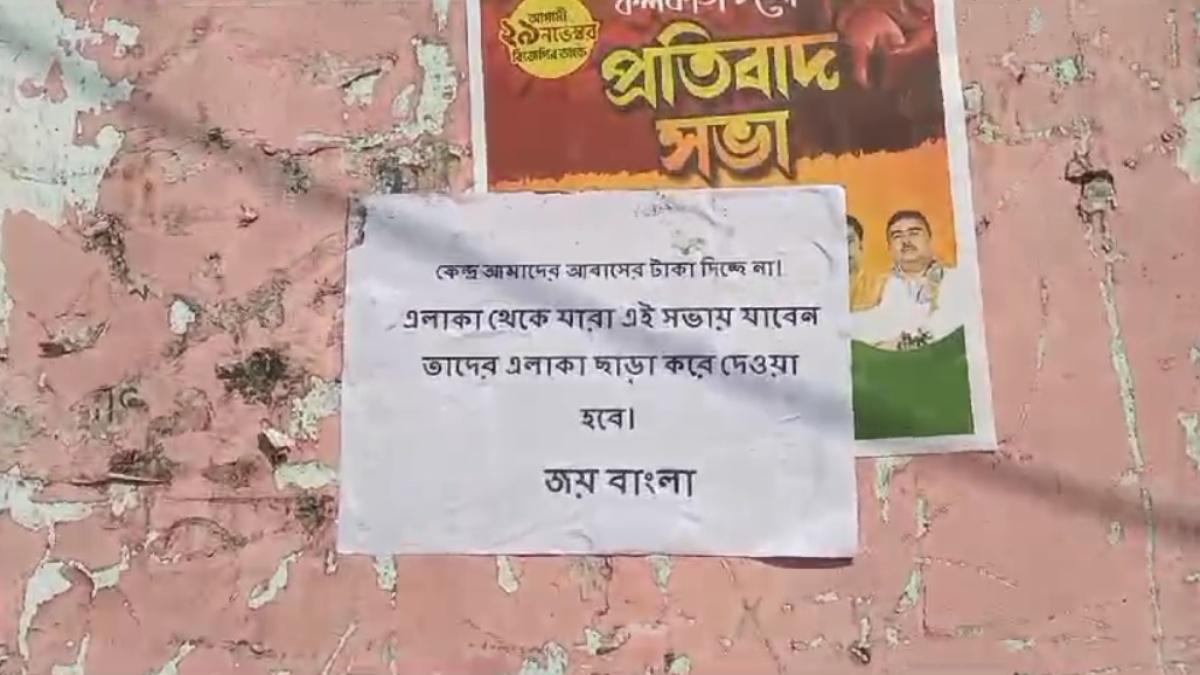 আগামী
২৯ নভেম্বর
বিজেপির ডাকে
প্রতিবাদ
সভা
কেন্দ্র আমাদের আবাসের টাকা দিচ্ছে না।
এলাকা থেকে যারা এই সভায় যাবেন
তাদের এলাকা ছাড়া করে দেওয়া
হবে।
জয় বাংলা